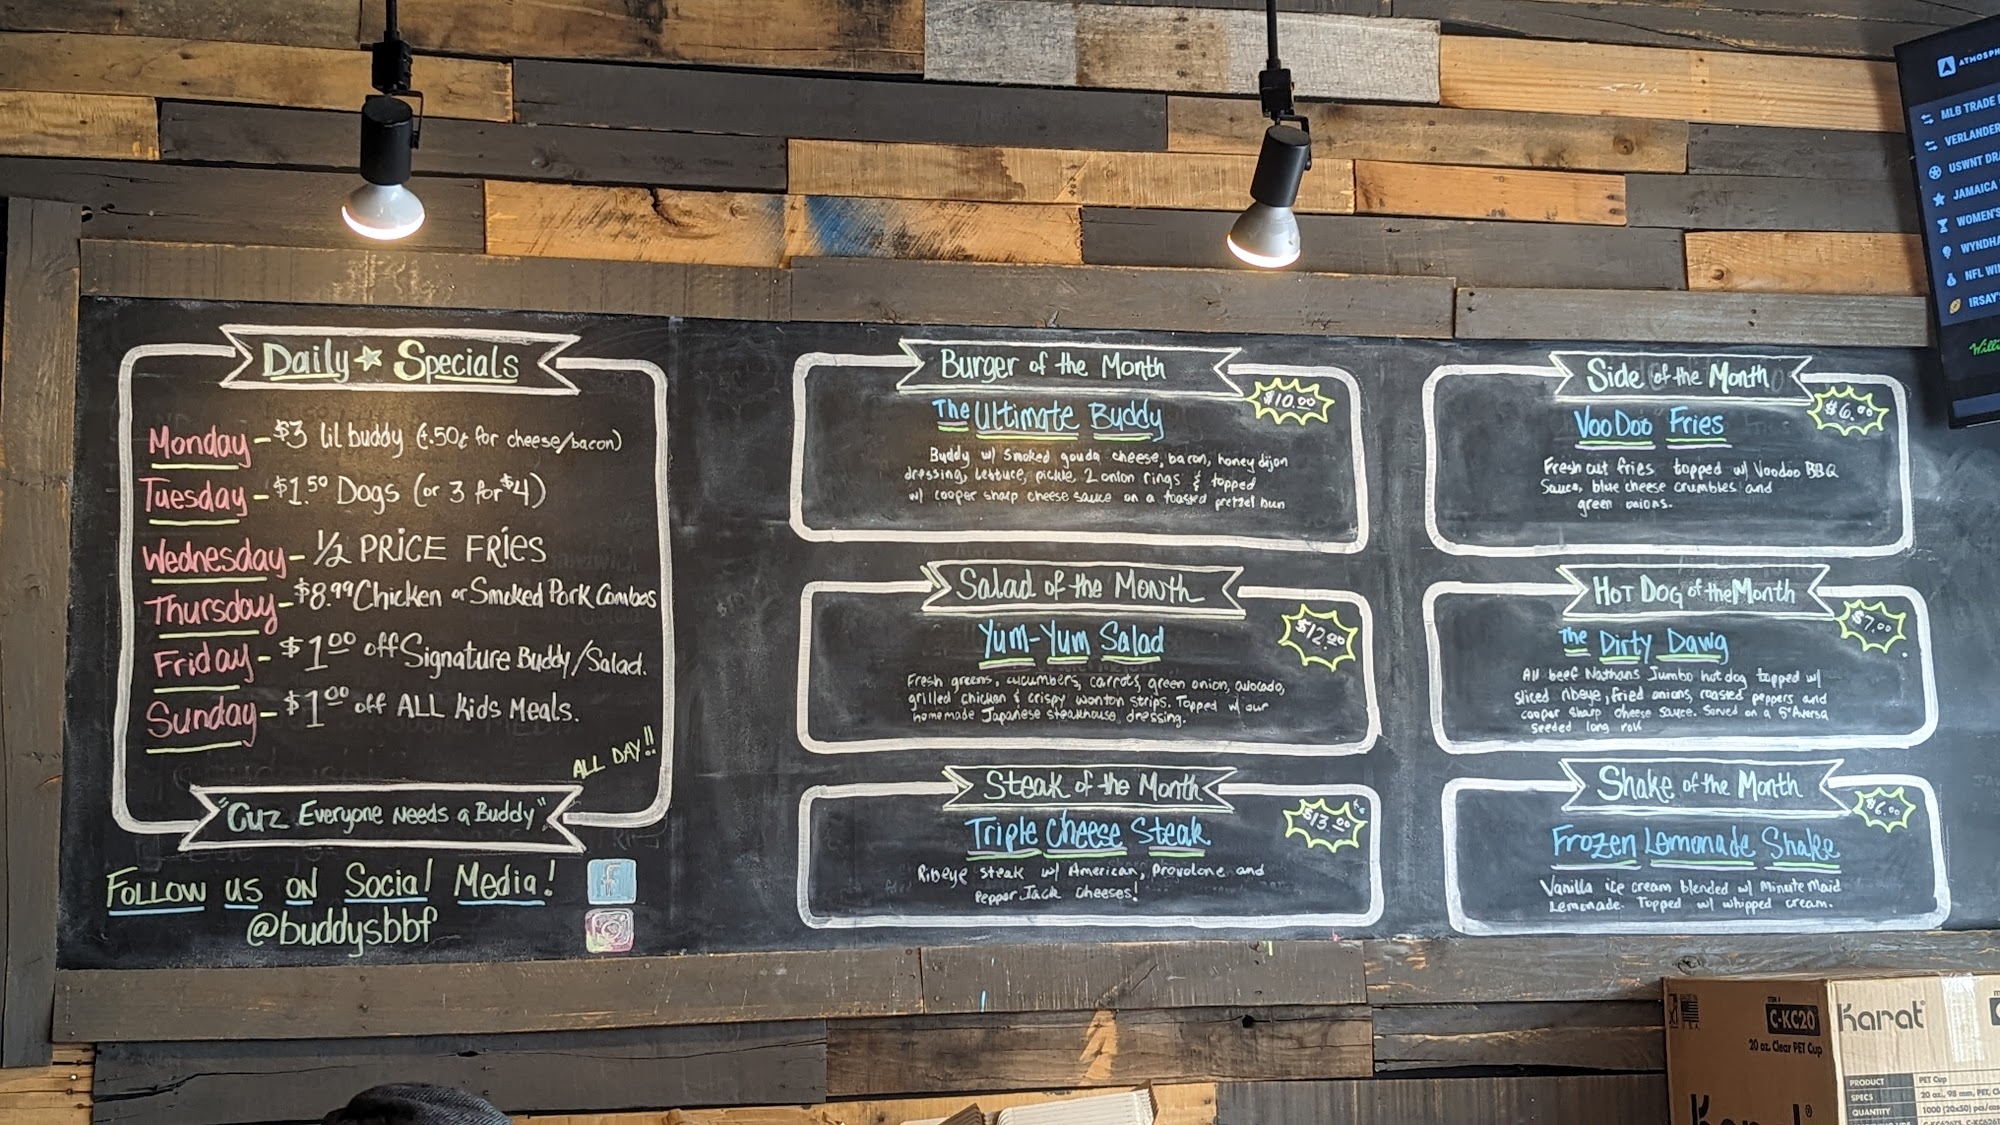 Daily ★ Specials
Monday - $3 lil buddy (+.50¢ for cheese/bacon)
Tuesday - $1.50 Dogs (or 3 for $4)
Wednesday - 1/2 PRICE FRIES
Thursday - $8.99 Chicken or Smoked Pork Combos
Friday - $1.00 off Signature Buddy/Salad.
Sunday - $1.00 off ALL Kids Meals.
ALL DAY!!
"Cuz Everyone Needs a Buddy"
Follow us on Social Media!
@buddysbbf
Burger of the Month
$10.00
The Ultimate Buddy
Buddy w/ Smoked gouda cheese, bacon, honey dijon
dressing, lettuce, pickle, 2 onion rings & topped
w/ cooper sharp cheese sauce on a toasted pretzel bun
Salad of the Month
$12.00
Yum-Yum Salad
Fresh greens, cucumbers, carrots, green onion, avocado,
grilled chicken & crispy wonton strips. Topped w/ our
homemade Japanese steakhouse dressing.
Steak of the Month
$13.00
Triple Cheese Steak
Ribeye steak w/ American, Provolone and
Pepper Jack cheeses!
Side of the Month
$6.00
VooDoo Fries
Fresh cut fries topped w/ Voodoo BBQ
Sauce, blue cheese crumbles and
green onions.
Hot Dog of the Month
$7.00
The Dirty Dawg
All beef Nathans Jumbo hot dog topped w/
sliced ribeye, fried onions, roasted peppers and
cooper sharp cheese sauce. Served on a 5" Aversa
seeded long roll
Shake of the Month
$6.00
Frozen Lemonade Shake
Vanilla ice cream blended w/ Minute Maid
Lemonade. Topped w/ whipped cream.
MLB TRADE
VERLANDER
USWNT
JAMAICA
WOMEN'S
NFL
IRSAY'S
C-KC20
20 oz. Clear PET Cup
Karat
PRODUCT PET Cup
SPECS 20 oz., 98 mm, PET,
QUANTITY 1000 (20x50)